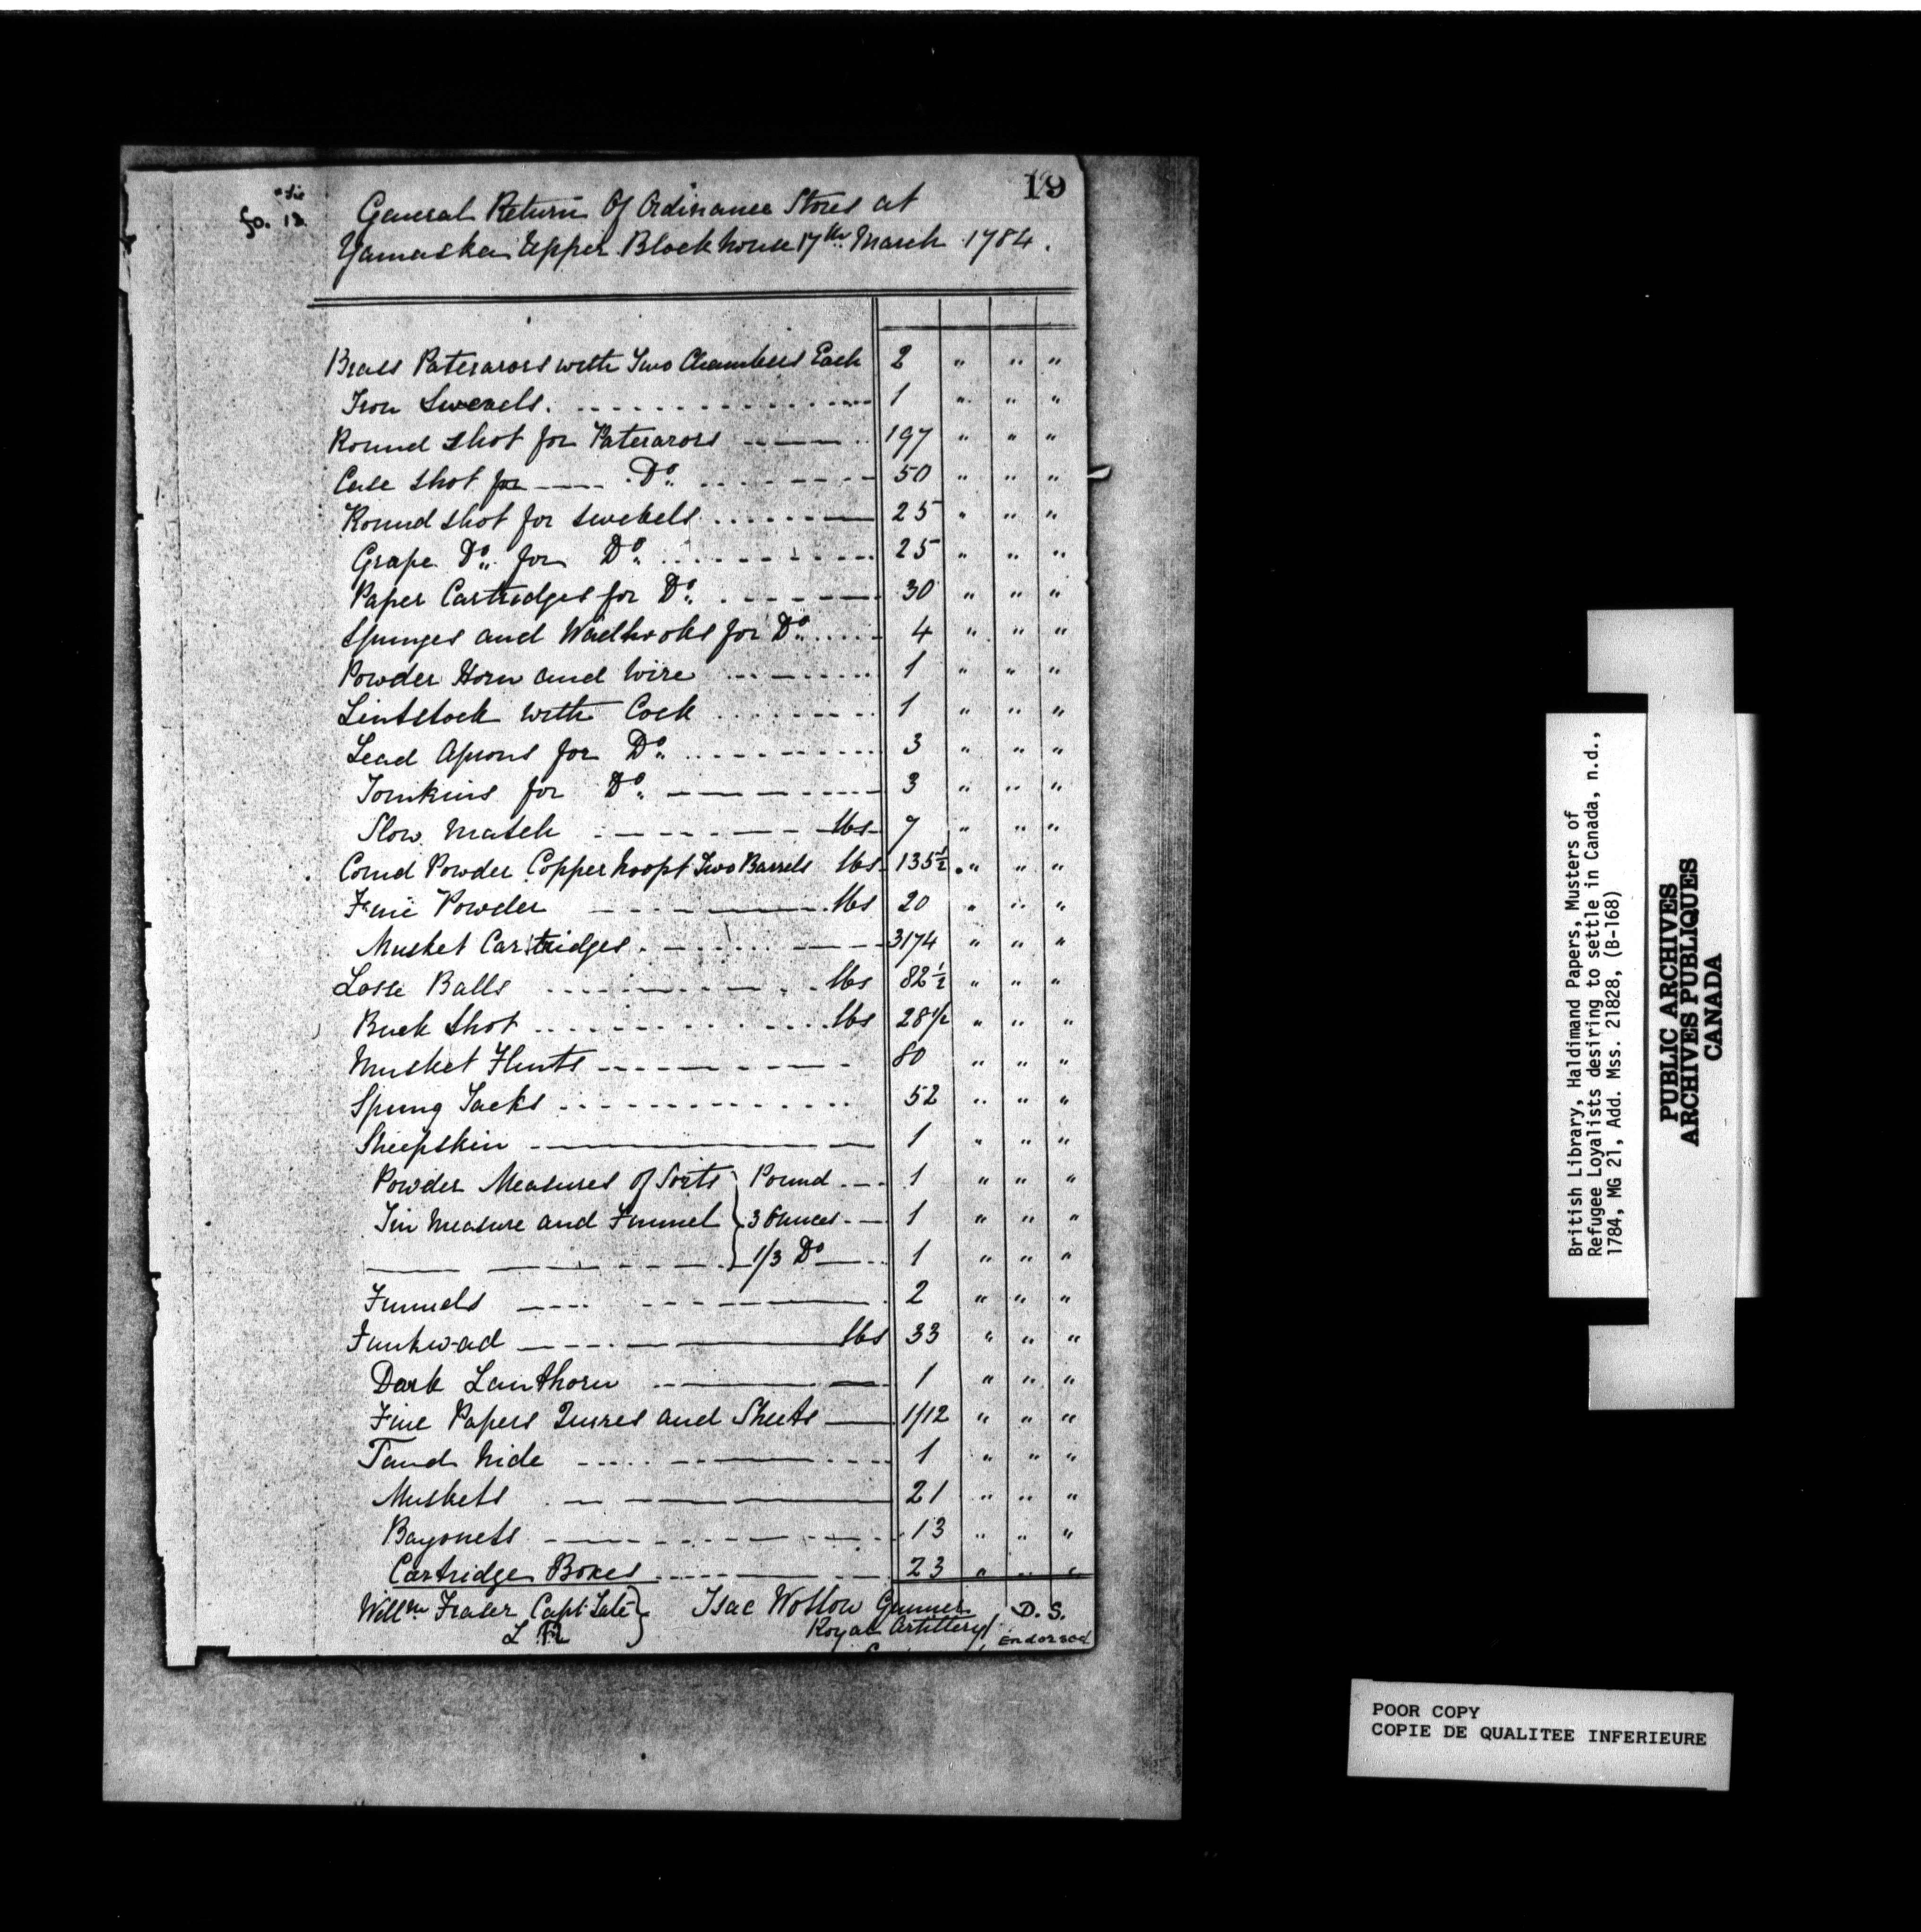 19
fo. 12
General Return Of Ordinance Stores at
Yamaska Upper Blockhouse 17th March 1784.
Brass Paterarors with Two Chambers Each 2 " " "
Iron Swevels. 1 " " "
Round shot for Paterarors 197 " " "
Case shot for Do. 50 " " "
Round shot for swebels 25 " " "
Grape Do. for Do. 25 " " "
Paper Cartridges for Do. 30 " " "
Spunges and Wadhooks for Do. 4 " " "
Powder Horn and Wire 1 " " "
Lintstock with Cock 1 " " "
Lead Aprons for Do. 3 " " "
Tomkins for Do. 3 " " "
Slow Match lbs 7 " " "
Cornd Powder Copper hoopt Two Barrels lbs 135 1/2 " " "
Fine Powder lbs 20 " " "
Musket Cartridges. 3174 " " "
Losse Balls lbs 82 1/2 " " "
Buck Shot lbs 28 1/2 " " "
Musket Flints 80 " " "
Spung Tacks 52 " " "
Sheepskin 1 " " "
Powder Measures of Sorts } Pound 1 " " "
Tin Measure and Funnel } 3 Ounces 1 " " "
} 1/3 Do 1 " " "
Funnels 2 " " "
Junkwad lbs 33 " " "
Dark Lanthorn 1 " " "
Fine Papers Quires and Sheets 1/12 " " "
Tand hide 1 " " "
Muskets 21 " " "
Bayonets 13 " " "
Cartridge Boxes 23 " " "
Willm Fraser Capt. Late } Isac Wollow Gunner D. S.
L R Royal Artillery Endorsed
British Library, Haldimand Papers, Musters of
Refugee Loyalists desiring to settle in Canada, n.d.,
1784, MG 21, Add. Mss. 21828, (B-168)
PUBLIC ARCHIVES
ARCHIVES PUBLIQUES
CANADA
POOR COPY
COPIE DE QUALITEE INFERIEURE